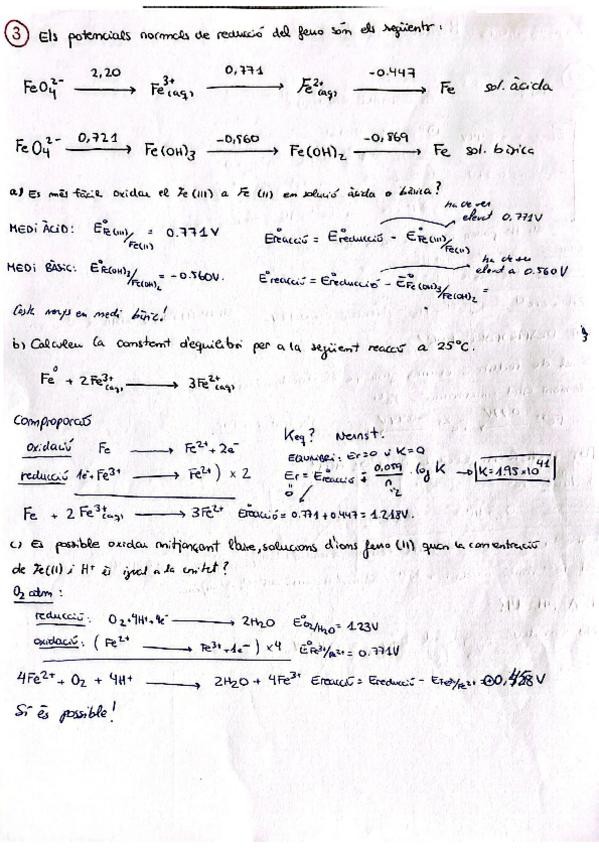 3 Els potencials normals de reducció del ferro són els següents:
FeO₄²⁻ —2,20→ Fe³⁺(aq) —0,771→ Fe²⁺(aq) —-0.447→ Fe sol. àcida
FeO₄²⁻ —0,721→ Fe(OH)₃ —-0,560→ Fe(OH)₂ —-0,869→ Fe sol. bàsica
a) Es més fàcil oxidar el Fe(III) a Fe(II) en solució àcida o bàsica?
MEDI ÀCID: E°Fe(III)/Fe(II) = 0.771V E°reacció = E°reducció - E°Fe(III)/Fe(II) ha de ser elevat 0.771V
MEDI BÀSIC: E°Fe(OH)₃/Fe(OH)₂ = -0.560V. E°reacció = E°reducció - E°Fe(OH)₃/Fe(OH)₂ = ha de ser elevat a 0.560V
Costa menys en medi bàsic!
b) Calculeu la constant d'equilibri per a la següent reacció a 25°C.
Fe⁰ + 2Fe³⁺(aq) ⟶ 3Fe²⁺(aq)
Comproporció
oxidació Fe ⟶ Fe²⁺ + 2e⁻
reducció 1e⁻ + Fe³⁺ ⟶ Fe²⁺) × 2
Fe + 2Fe³⁺(aq) ⟶ 3Fe²⁺
Keq? Nernst.
EQUILIBRI: Er=0 i K=Q
Er = E°reacció + 0,059/n log K → K=1.95×10⁴¹
0 2
E°reacció = 0.771+0.447 = 1.218V.
c) És possible oxidar mitjançant l'aire, solucions d'ions ferro (II) quan la concentració
de Fe(II) i H⁺ és igual a la unitat?
O₂ atm:
reducció: O₂+4H⁺+4e⁻ ⟶ 2H₂O E°O₂/H₂O = 1.23V
oxidació: (Fe²⁺ ⟶ Fe³⁺+1e⁻) ×4 E°Fe³⁺/Fe²⁺ = 0.771V
4Fe²⁺ + O₂ + 4H⁺ ⟶ 2H₂O + 4Fe³⁺ Ereacció = Ereducció - EFe³⁺/Fe²⁺ = 0,458V
Sí és possible!